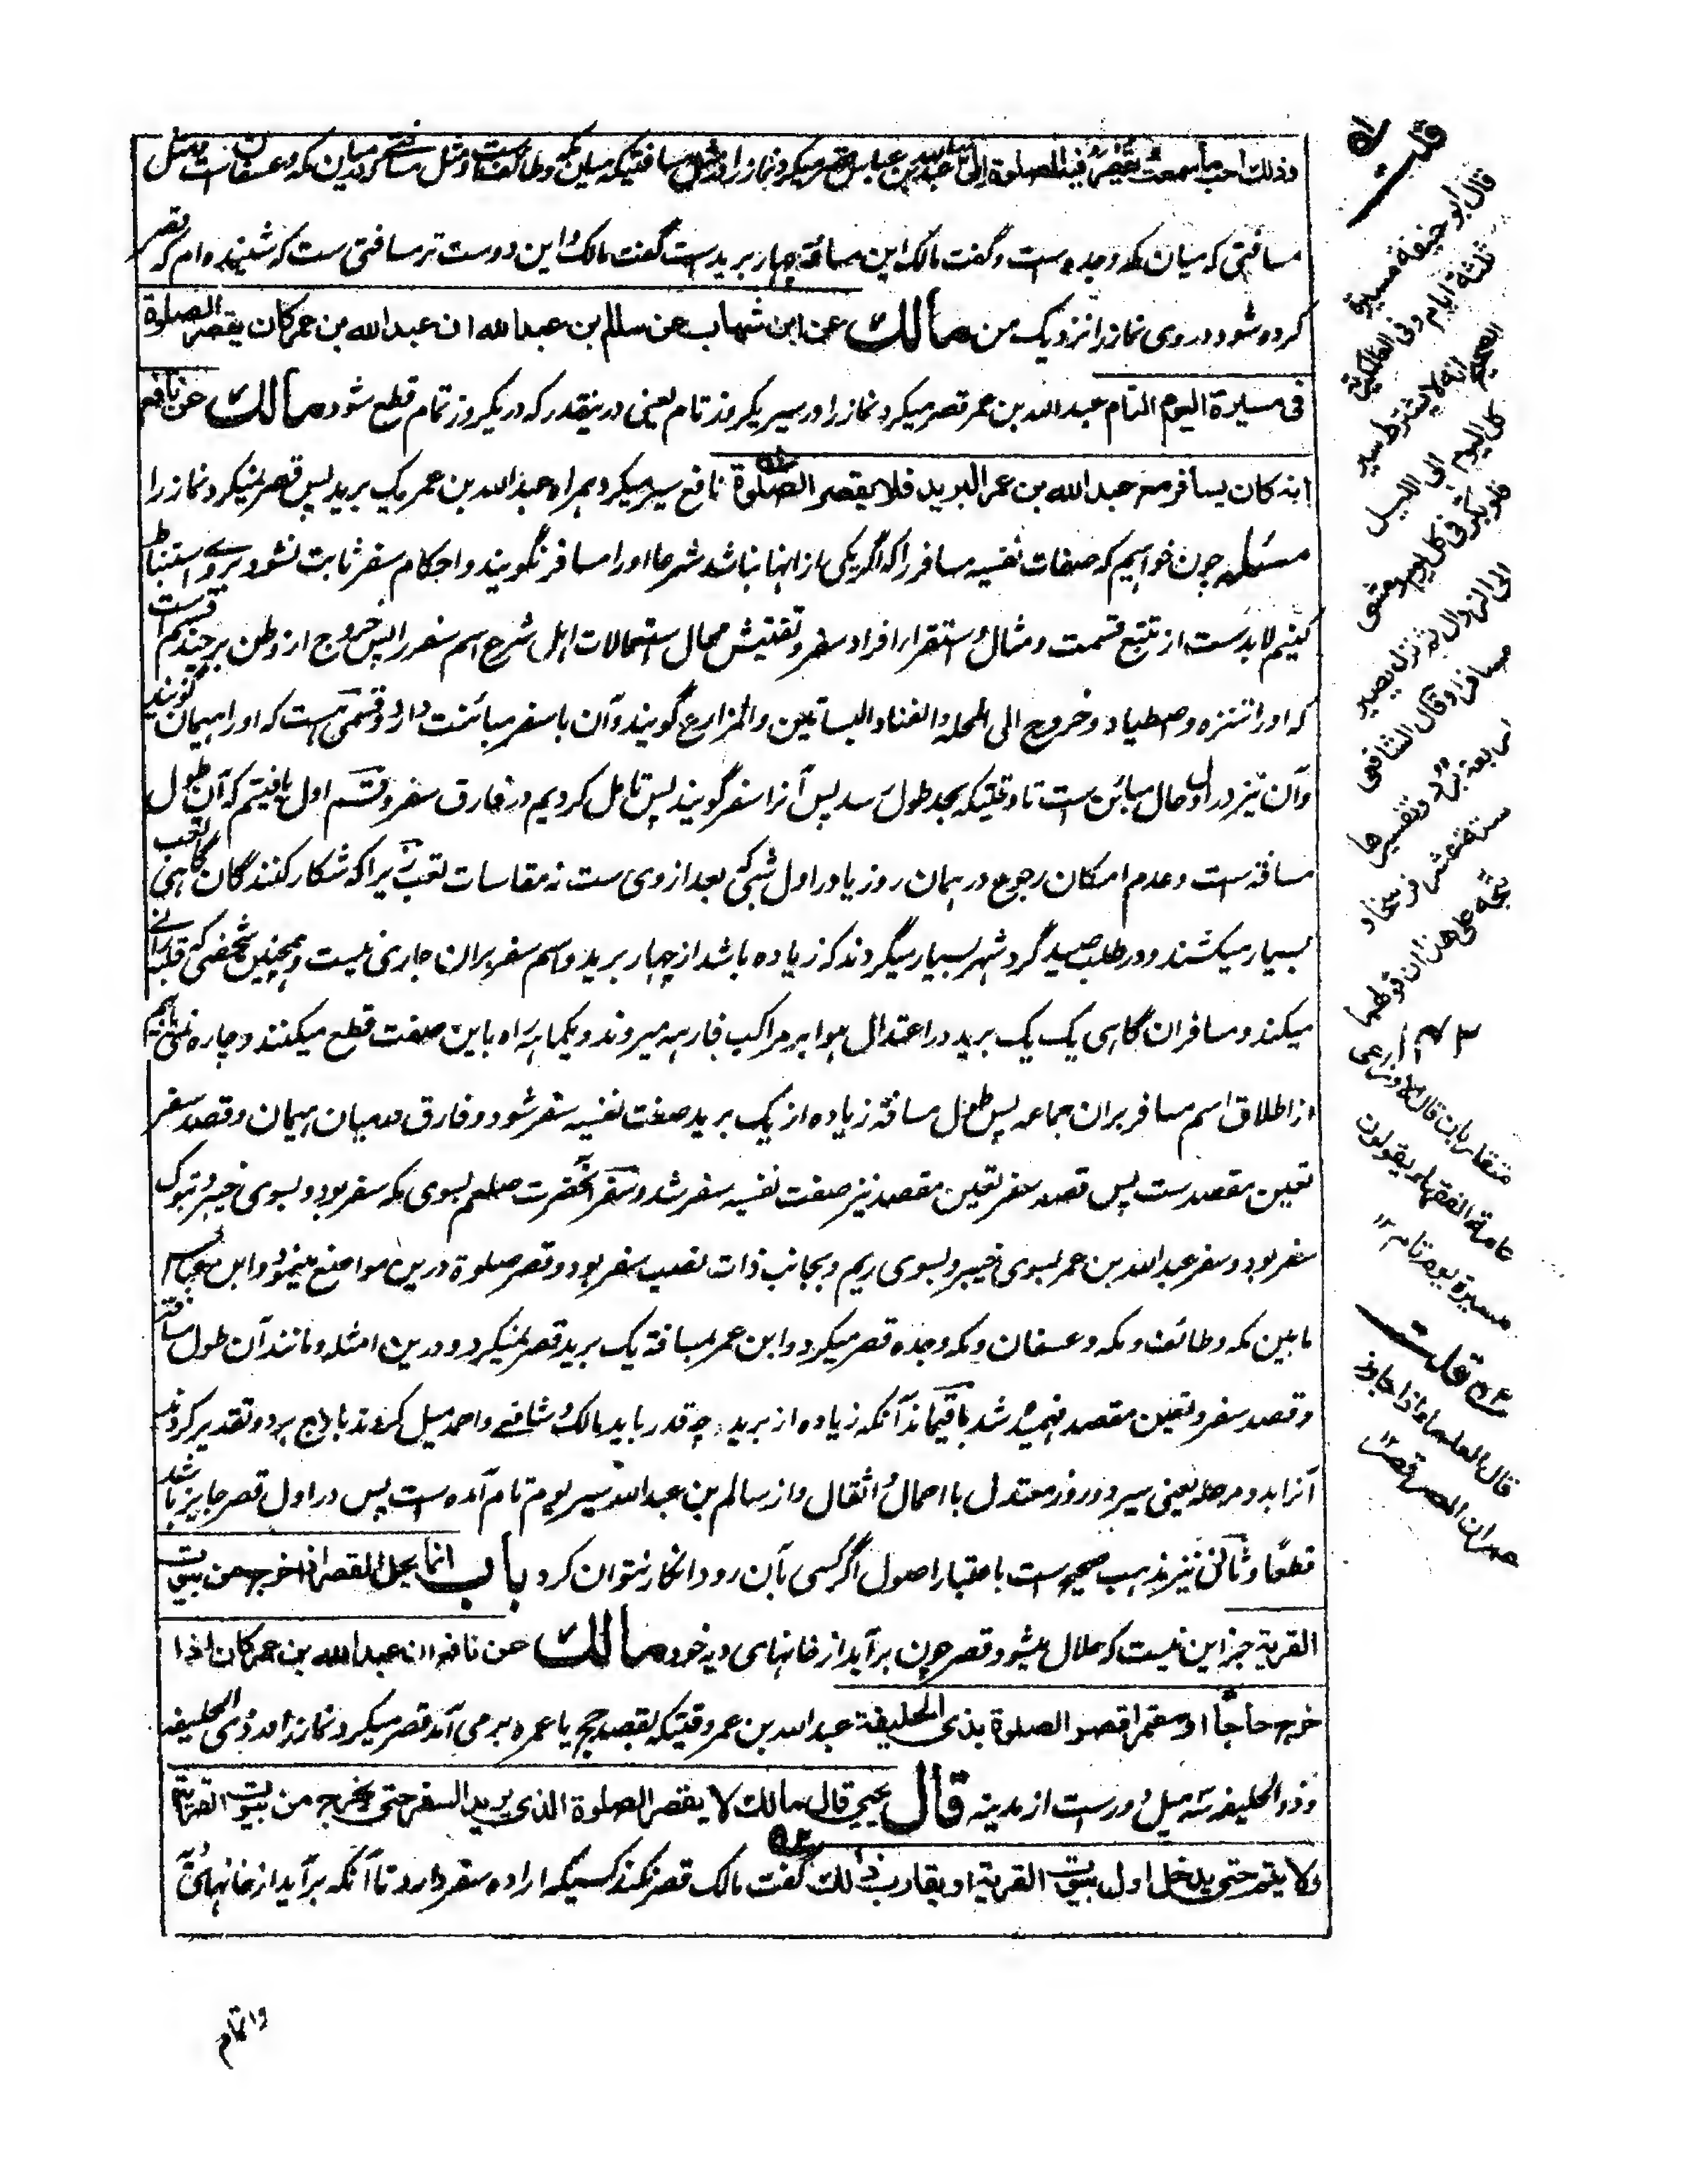 وذلك احب ما سمعت يقصر فيه الصلوة الى عبد الله بن عباس قصر میکرد نماز را در مثل مسافتیکه میان مکه وطائف ست ومثل مسافتیکه میان مکه وعسفان ست ومثل
مسافتی که میان مکه وجده ست وگفت مالک این مسافة چهار برید ست گفت مالک این دوست تر مسافتی ست که شنیده ام که قصر
کرده شود در وی نماز را نزدیک من مالك عن ابن شهاب عن سالم بن عبد الله ان عبد الله بن عمر كان يقصر الصلوة
فى مسيرة اليوم التام عبد الله بن عمر قصر میکرد نماز را در سیر یکروز تام یعنی در ینقدر که در یکروز تمام قطع شود مالك عن نافع
انه كان يسافر مع عبد الله بن عمر البريد فلا يقصر الصلوة نافع سیر میکرد همراه عبد الله بن عمر یک برید پس قصر نمیکرد نماز را
مسئله چون خواهیم که صفات نفسیه مسافر را که اگر یکی از انها نباشد شرعا او را مسافر نگویند و احکام سفر ثابت نشود بروی استنباط
کنیم لابد ست از تتبع قسمت ومثال واستقراء افراد سفر وتفتیش محال استعمالات اهل شرع اسم سفر را پس خروج از وطن بر چند قسم ست
که او را تنزه و اصطیاد وخروج الی المحله والفناء والبساتین والمزارع گویند وآن با سفر مبائنت دارد وقسمی ست که او را هیمان گویند
وآن نیز در اول حال مبائن ست تا وقتیکه بحد طول رسد پس آنرا سفر گویند پس تامل کردیم در فارق سفر وقسم اول یافتیم که آن طول
مسافة ست وعدم امکان رجوع در همان روز یا در اول شبی که بعد از وی ست نه مقاسات تعب زیرا که شکار کنندگان گاهی تعب
بسیار میکشند ودر طلب صید گرد شهر بسیار میگردند که زیاده باشد از چهار برید واسم سفر بران جاری نیست وهمچنین شخصی که قلبه رانی
میکند ومسافران گاهی یک یک برید در اعتدال هوا بر مراکب فارهه میروند ویکماهه راه باین صفت قطع میکنند وچاره نمی یابیم
از اطلاق اسم مسافر بران جماعه پس طول مسافة زیاده از یک برید صفت نفسیه سفر شود وفارق در میان هیمان وقصد سفر
تعین مقصد ست پس قصد سفر تعین مقصد نیز صفت نفسیه سفر شد وسفر آنحضرت صلعم بسوی مکه سفر بود وبسوی خیبر وتبوک
سفر بود وسفر عبد الله بن عمر بسوی خیبر وبسوی ریم وبجانب ذات نصب سفر بود وقصر صلوة درین مواضع مینمود وابن عباس
مابین مکه وطائف ومکه وعسفان ومکه وجده قصر میکرد وابن عمر بمسافة یک برید قصر نمیکرد ودرین امثله ومانند آن طول مسافة
وقصد سفر وتعین مقصد فهمیده شد باقیماند آنکه زیاده از برید چه قدر باید مالک وشافعی واحمد میل کردند باربع برد وتقدیر کردند
آنرا بدو مرحله یعنی سیر دو روز معتدل با احمال واثقال واز سالم بن عبد الله سیر یوم تام آمده ست پس در اول قصر جایز باشد
قطعا وثانی نیز مذهب صحیح ست باعتبار اصول اگر کسی بآن رود انکار نتوان کرد باب انما يحل القصر اذا خرج من بيوت
القرية جز این نیست که حلال میشود قصر چون برآید از خانهای دیه خود مالك عن نافع ان عبد الله بن عمر كان اذا
خرج حاجا او معتمرا قصر الصلوة بذى الحليفة عبد الله بن عمر وقتیکه بقصد حج یا عمره بر می آمد قصر میکرد نماز را در ذی الحلیفه
وذو الحلیفه سه میل دور ست از مدینه قال يحيى قال مالك لا يقصر الصلوة الذى يريد السفر حتى يخرج من بيوت القرية
ولا يتم حتى يدخل اول بيوت القرية او يقارب ذلك گفت مالک قصر نکند کسیکه اراده سفر دارد تا آنکه برآید از خانهای
واتمام
قلت
قال ابو حنيفة مسيرة
ثلثة ايام وفى العالمكيرية
الصحيح انه لا يشترط سير
كل اليوم الى الليل
فلو بكر فى كل يوم ومشى
الى الزوال ثم نزل يصير
مسافرا وقال الشافعى
اربعة برد وتفسيرها
ستة عشر فرسخا
على هذا ان قولهما
متقاربان قال الاوزاعى
عامة الفقهاء يقولون
مسيرة يوم تام ۱۲
قلت
قال العلماء اذا جاوز
عمران المصر قصر ۱۲